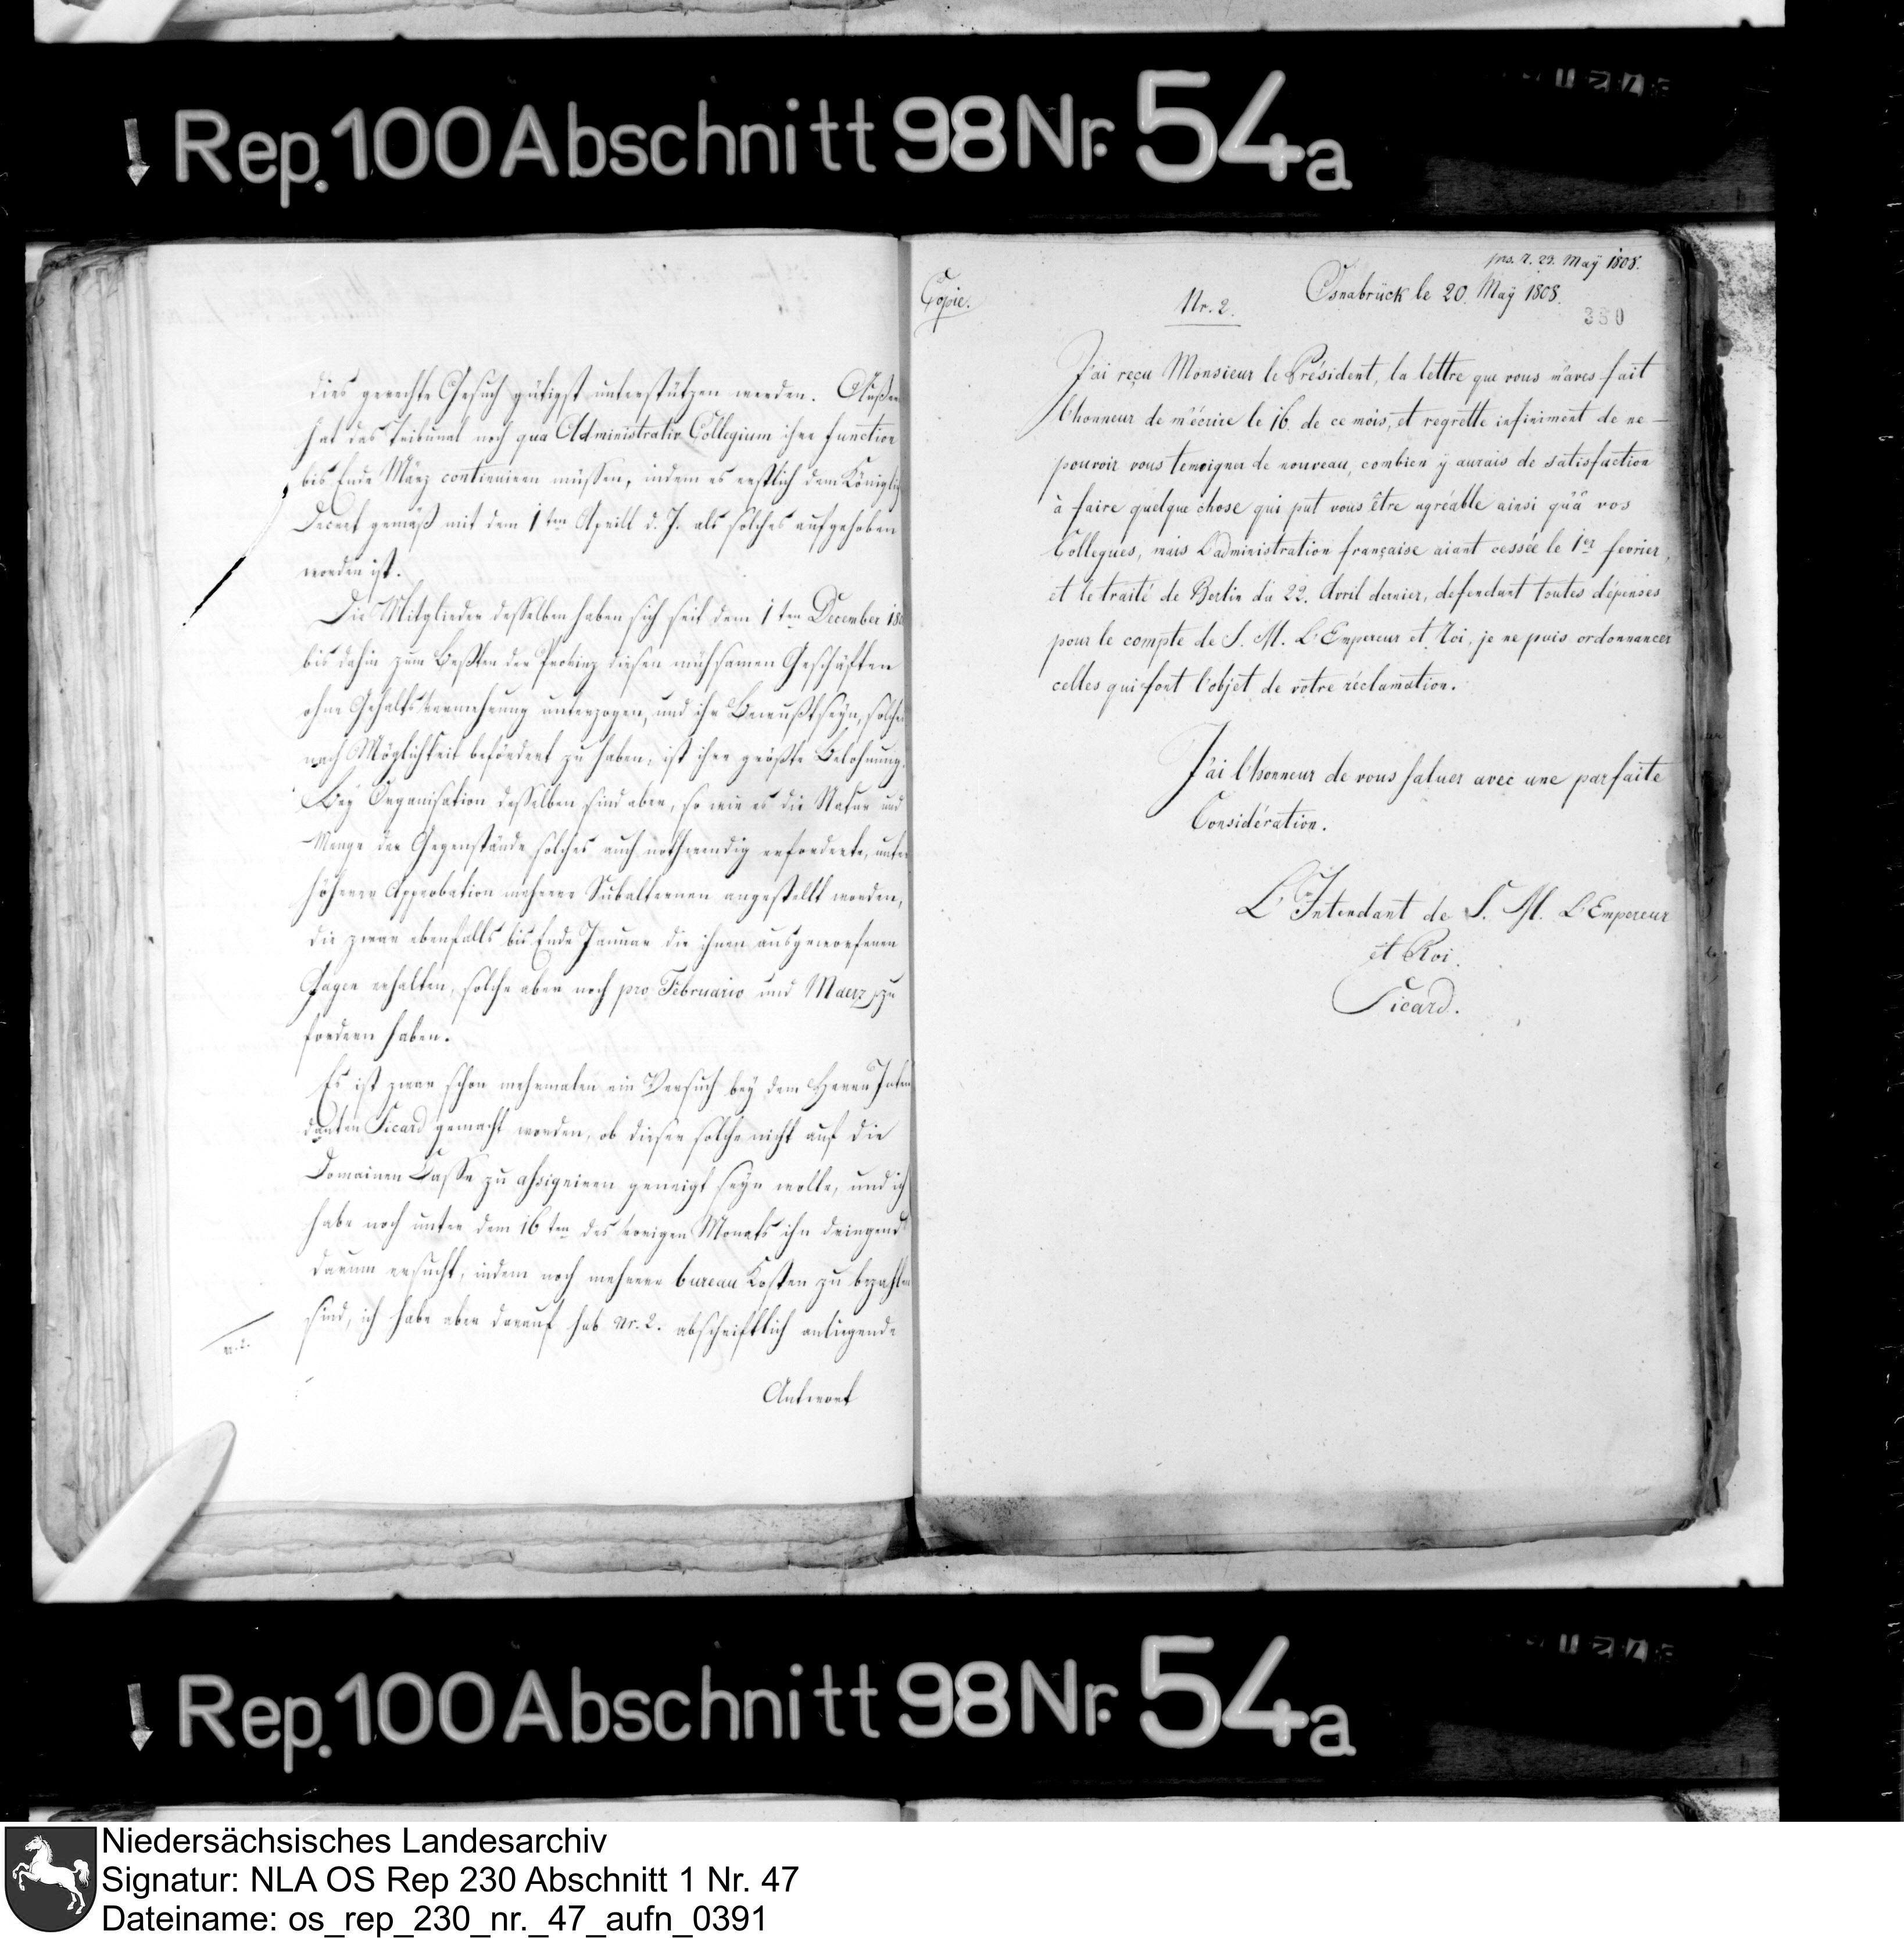 Rep. 100 Abschnitt 98 Nr. 54a
dies gerechte Gesuch gütigst unterstützen werden. Außer
hat das Tribunal noch qua Administrativ Collegium ihre function
bis Ende März continuiren müssen, indem es erstlich dem Königlich
Decret gemäß mit dem 1ten Aprill d. J. als solches aufgehoben
worden ist.
Die Mitglieder desselben haben sich seit dem 1ten December 180
bis dahin zum Besten der Provinz diesen mühsamen Geschäften
ohne Gehalts Vermehrung unterzogen, und ihr Bewußtseyn, solche
nach Möglichkeit befördert zu haben, ist ihre größte Belohnung.
Bey Organisation desselben sind aber, so wie es die Natur und
Menge der Gegenstände solches auch nothwendig erforderte, unter
höherer Approbation mehrere Subalternen angestellt worden,
die zwar ebenfalls bis Ende Januar die ihnen ausgeworfenen
Gagen erhalten, solche aber noch pro Februario und Maerz zu
fordern haben.
Es ist zwar schon mehrmalen ein Versuch bey dem Herrn Inten
danten Sicard gemacht worden, ob dieser solche nicht auf die
Domainen Casse zu assigniren geneigt seyn wolle, und ich
habe noch unter dem 16ten des vorigen Monats ihn dringend
darum ersucht, indem noch mehrere bureau Kosten zu bezahlen
sind, ich habe aber darauf sub Nr. 2. abschriftlich anliegende
nr. 2.
Antwort
prs. d. 29. Maÿ 1808.
Copie.
Osnabrück le 20. Maÿ 1808.
Nr. 2.
350
J'ai reçu Monsieur le Président, la lettre que vous m'aves fait
l'honneur de m'écrire le 16. de ce mois, et regrette infiniment de ne
pouvoir vous temoigner de nouveau, combien ÿ aurais de satisfaction
à faire quelque chose qui put vous être agréable ainsi qu'à vos
Collegues, mais L'administration française aiant cessée le 1er fevrier,
et le traité de Berlin du 22. Avril dernier, defendant toutes dépenses
pour le compte de S. M. L'Empereur et Roi, je ne puis ordonnancer
celles qui font l'objet de votre réclamation.
J'ai l'honneur de vous saluer avec une parfaite
Considération.
L'Intendant de S. M. L'Empereur
et Roi.
Sicard.
Rep. 100 Abschnitt 98 Nr. 54a
Niedersächsisches Landesarchiv
Signatur: NLA OS Rep 230 Abschnitt 1 Nr. 47
Dateiname: os_rep_230_nr._47_aufn_0391